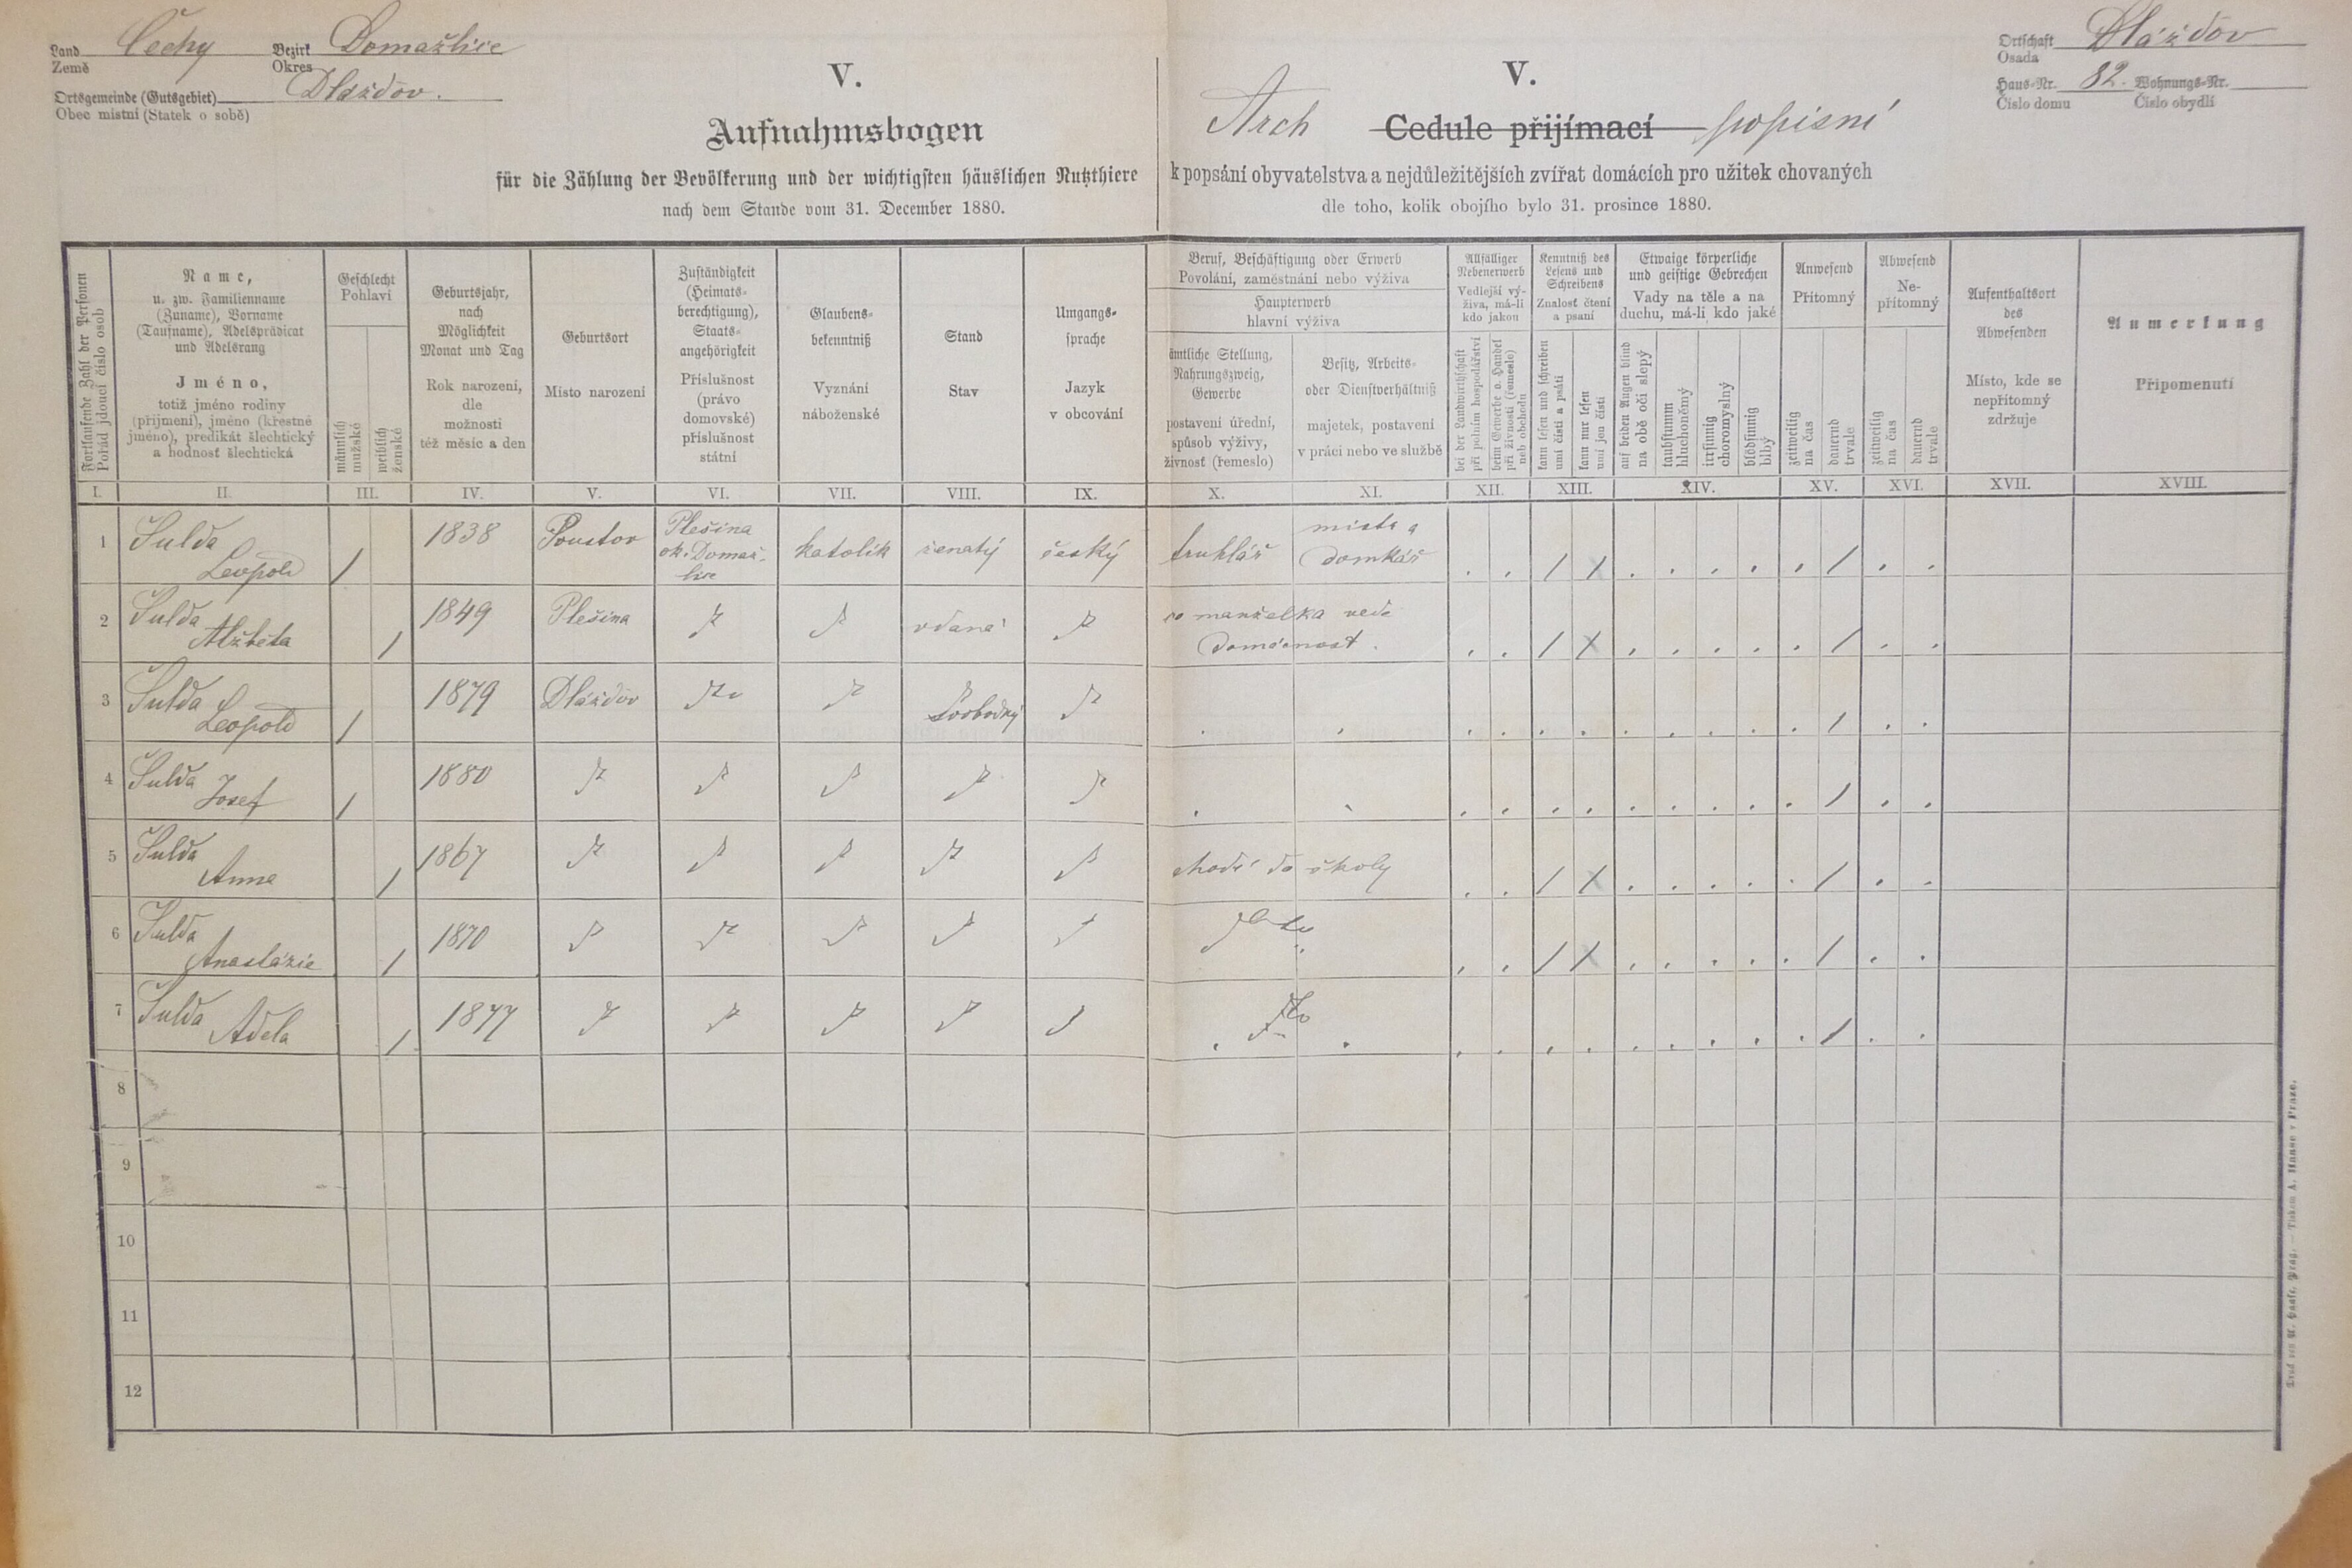 Land Čechy Bezirk Domažlice
Země Okres
Ortsgemeinde (Gutsgebiet) Dlaždov.
Obec místní (Statek o sobě)
V.
Aufnahmsbogen
für die Zählung der Bevölkerung und der wichtigsten häuslichen Nutzthiere
nach dem Stande vom 31. December 1880.
V.
Arch Cedule přijímací popisní
k popsání obyvatelstva a nejdůležitějších zvířat domácích pro užitek chovaných
dle toho, kolik obojího bylo 31. prosince 1880.
Ortschaft Dlážďov
Osada
Haus-Nr. 82. Wohnungs-Nr.
Číslo domu Číslo obydlí
Fortlaufende Zahl der Personen
Pořád jdoucí číslo osob
Name,
u. zw. Familienname
(Zuname), Vorname
(Taufname), Adelsprädicat
und Adelsrang
Jméno,
totiž jméno rodiny
(příjmení), jméno (křestné
jméno), predikát šlechtický
a hodnosť šlechtická
Geschlecht
Pohlaví
männlich
mužské
weiblich
ženské
Geburtsjahr,
nach
Möglichkeit
Monat und Tag
Rok narození,
dle
možnosti
též měsíc a den
Geburtsort
Místo narození
Zuständigkeit
(Heimats-
berechtigung),
Staats-
angehörigkeit
Příslušnost
(právo
domovské)
příslušnost
státní
Glaubens-
bekenntniß
Vyznání
náboženské
Stand
Stav
Umgangs-
sprache
Jazyk
v obcování
Beruf, Beschäftigung oder Erwerb
Povolání, zaměstnání nebo výživa
Haupterwerb
hlavní výživa
ämtliche Stellung,
Nahrungszweig,
Gewerbe
postavení úřední,
spůsob výživy,
živnosť (řemeslo)
Besitz, Arbeits-
oder Dienstverhältniß
majetek, postavení
v práci nebo ve službě
Allfälliger
Nebenerwerb
Vedlejší vý-
živa, má-li
kdo jakou
bei der Landwirthschaft
při polním hospodářství
beim Gewerbe o. Handel
při živnosti (řemesle)
neb obchodu
Kenntniß des
Lesens und
Schreibens
Znalosť čtení
a psaní
kann lesen und schreiben
umí čísti a psáti
kann nur lesen
umí jen čísti
Etwaige körperliche
und geistige Gebrechen
Vady na těle a na
duchu, má-li kdo jaké
auf beiden Augen blind
na obě oči slepý
taubstumm
hluchoněmý
irrsinnig
choromyslný
blödsinnig
blbý
Anwesend
Přítomný
zeitweilig
na čas
dauernd
trvale
Abwesend
Ne-
přítomný
zeitweilig
na čas
dauernd
trvale
Aufenthaltsort
des
Abwesenden
Místo, kde se
nepřítomný
zdržuje
Anmerkung
Připomenutí
I. II. III. IV. V. VI. VII. VIII. IX. X. XI. XII. XIII. XIV. XV. XVI. XVII. XVIII.
1 Šulda Leopold / 1838 Poustov Plešina ok. Domažlice katolík ženatý český truhlář mistr a domkář / X /
2 Šulda Alžběta / 1849 Plešina vdaná co manželka vede domácnost. / X /
3 Šulda Leopold / 1879 Dlážďov svobodný /
4 Šulda Josef / 1880 /
5 Šulda Anna / 1867 chodí do školy / X /
6 Šulda Anastázie / 1870 / X /
7 Šulda Adela / 1877 /
8
9
10
11
12